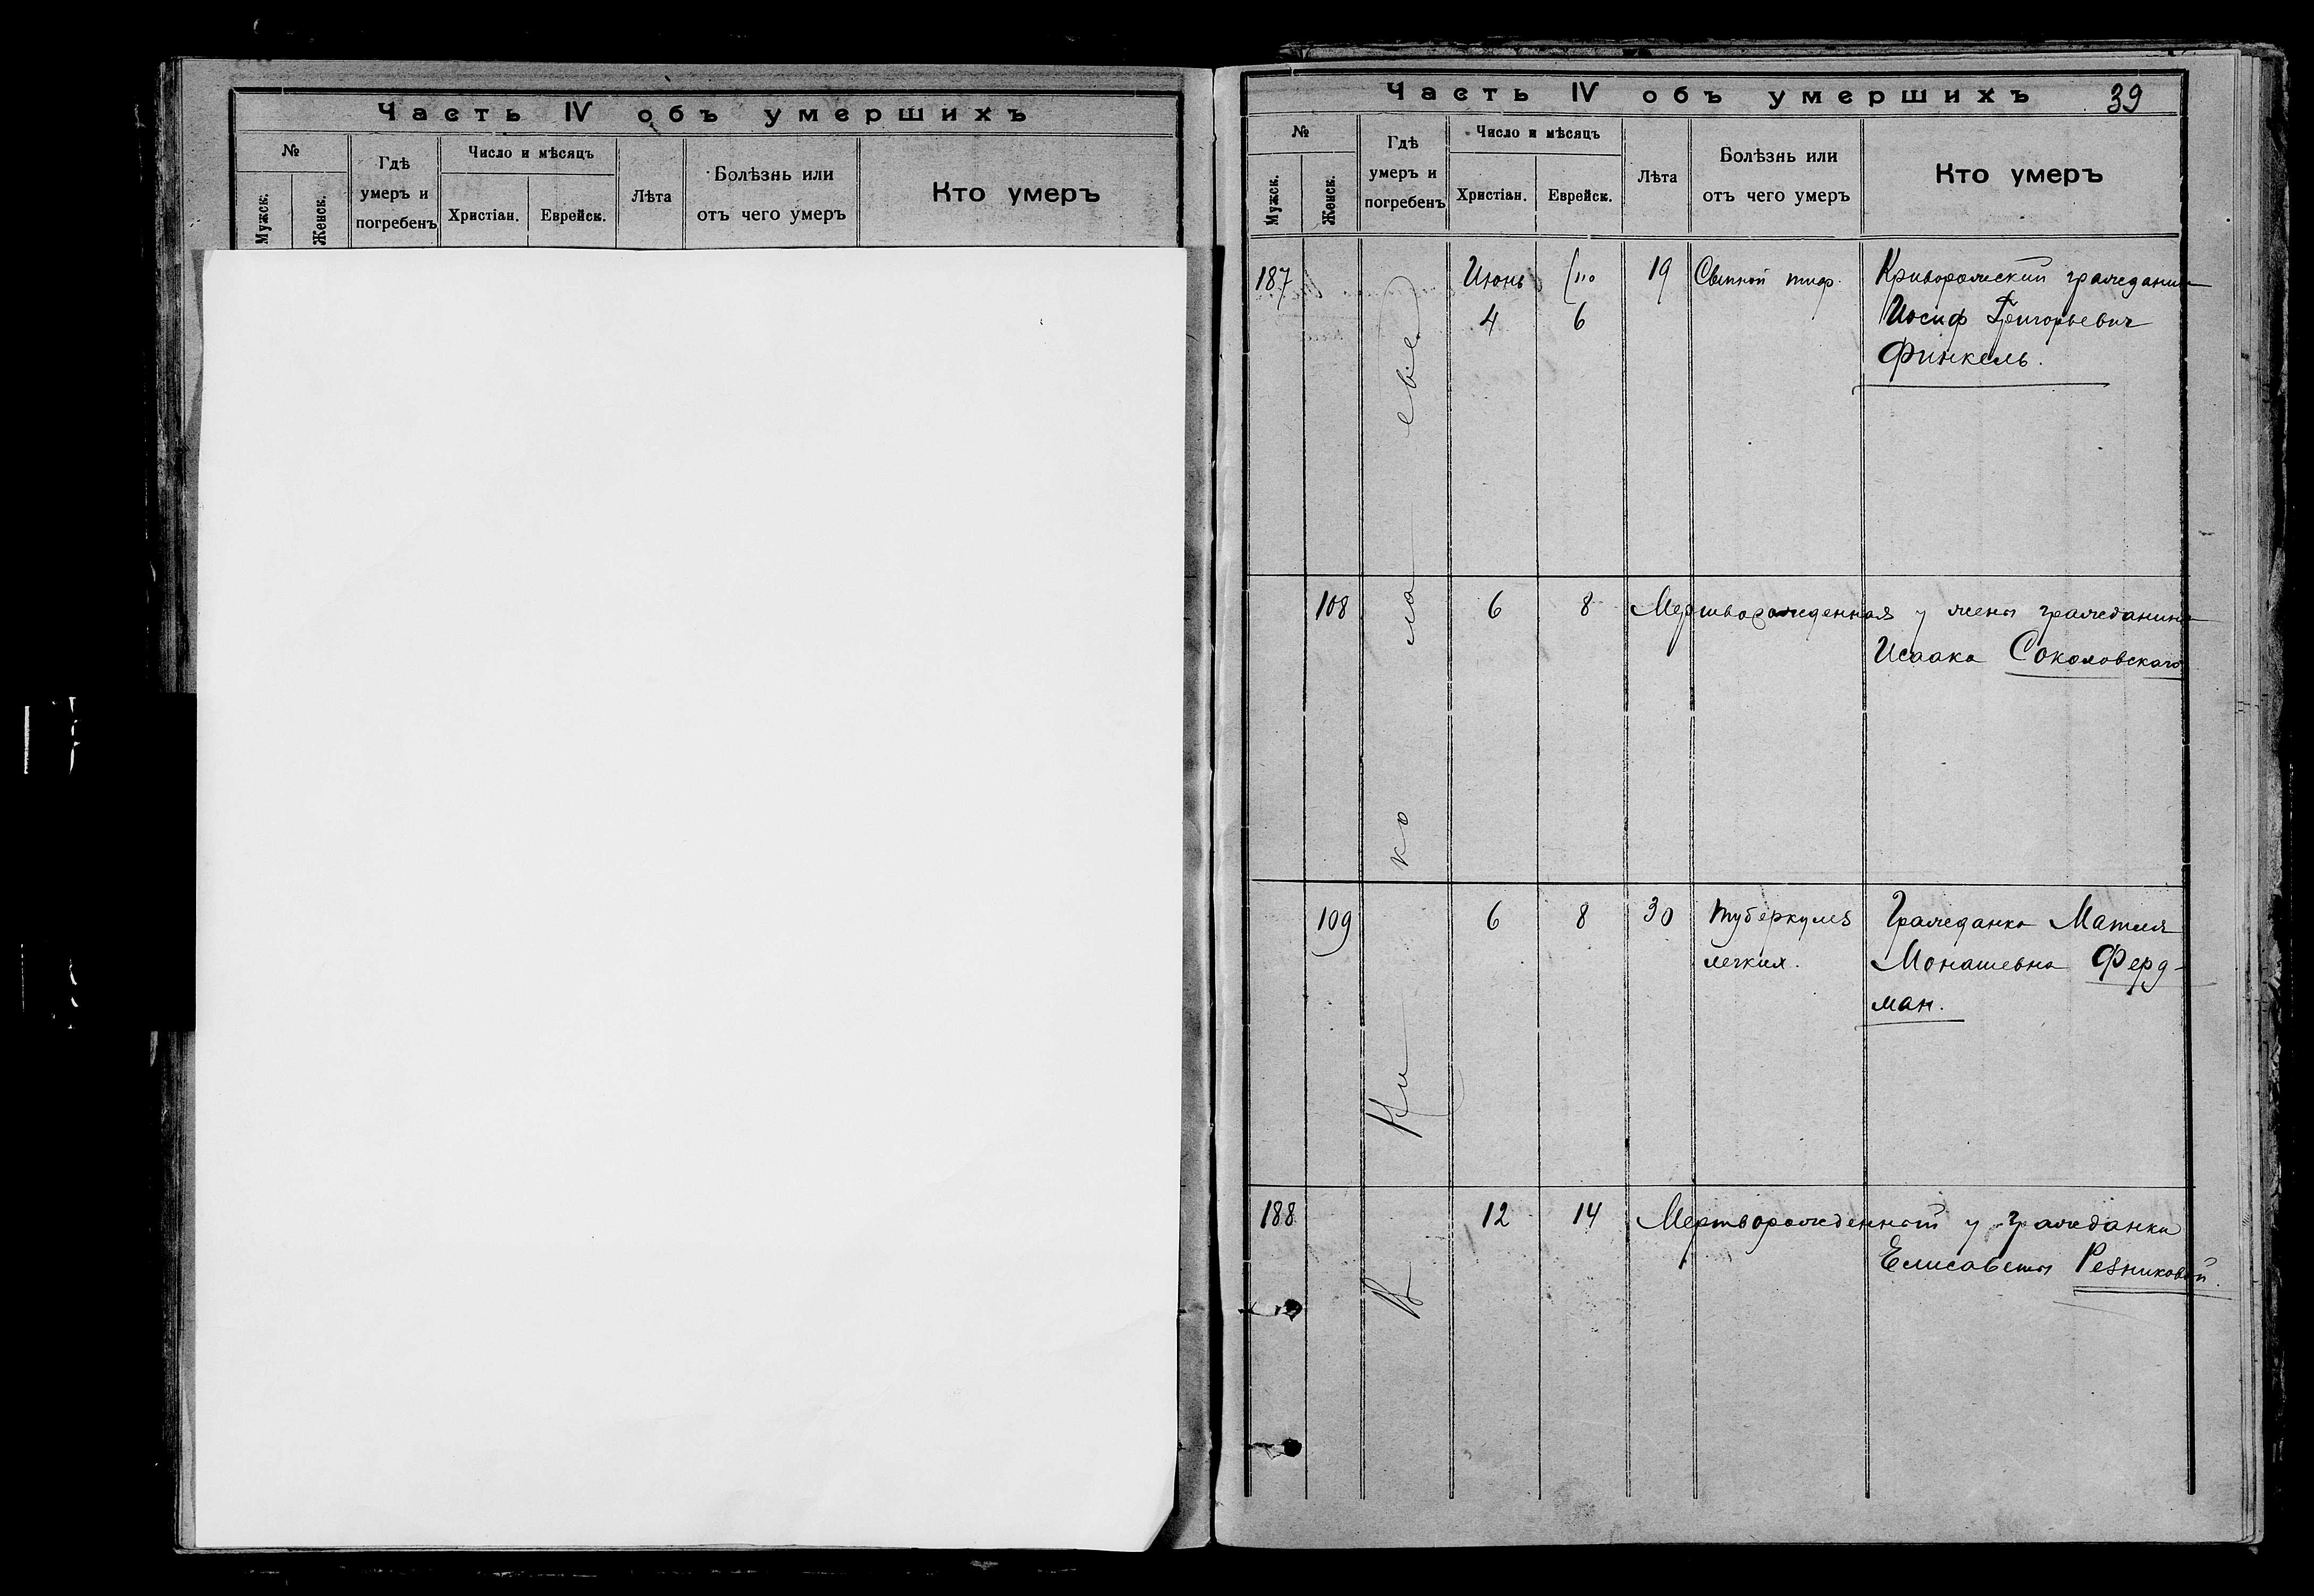 Часть IV объ умершихъ
№
Мужск.
Женск.
Гдѣ
умеръ и
погребенъ
Число и мѣсяцъ
Христіан.
Еврейск.
Лѣта
Болѣзнь или
отъ чего умеръ
Кто умеръ
Часть IV объ умершихъ 39
№
Мужск.
Женск.
Гдѣ
умеръ и
погребенъ
Число и мѣсяцъ
Христіан.
Еврейск.
Лѣта
Болѣзнь или
отъ чего умеръ
Кто умеръ
В Николаеве
187 Июнь 19 Сыпной тиф. Криворожский гражданин
4 6 Иосиф Григорьевич
Финкель.
108 6 8 Мертворожденная у жены гражданина
Исаака Соколовскаго
109 6 8 30 Туберкулез Гражданка Матля
легких. Монашевна Ферд-
ман.
188 12 14 Мертворожденный у гражданки
Елисаветы Резниковой.